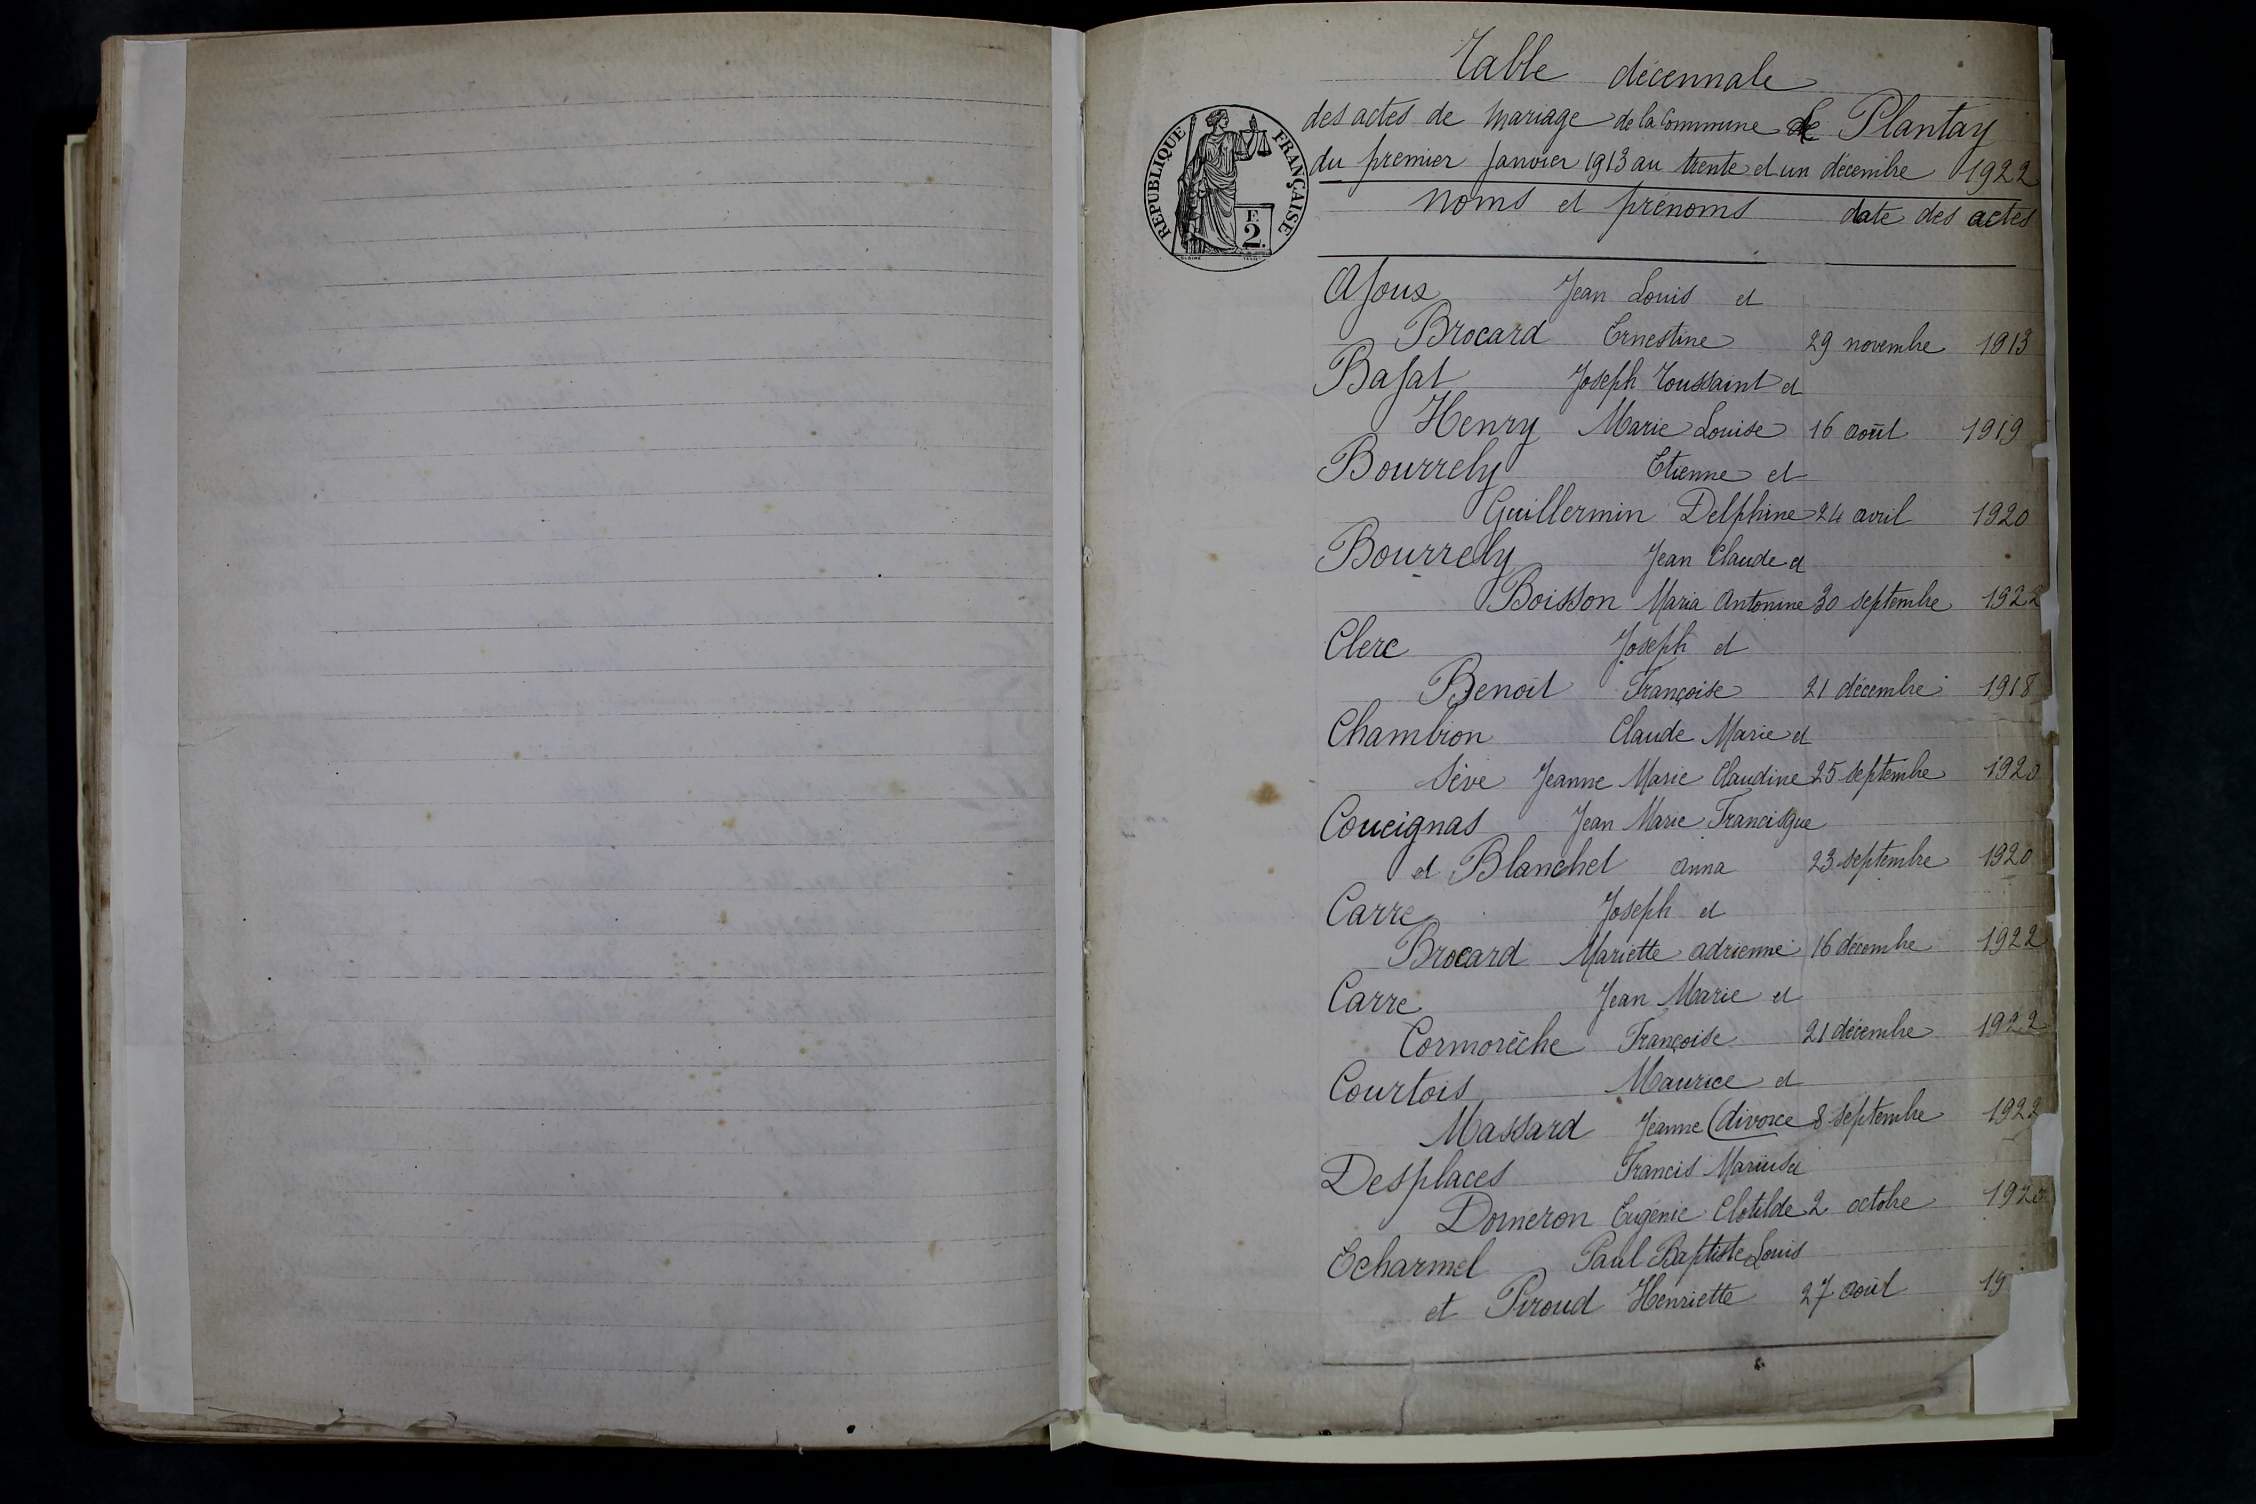 Table décennale
des actes de mariage de la Commune de Plantay
du premier Janvier 1913 au trente et un décembre 1922
RÉPUBLIQUE FRANÇAISE
F.
2.
noms et prénoms date des actes
Ajoux Jean Louis et
Brocard Ernestine 29 novembre 1913
Bajat Joseph Toussaint et
Henry Marie Louise 16 août 1919
Bourrely Etienne et
Guillermin Delphine 24 avril 1920
Bourrely Jean Claude et
Boisson Maria Antonine 30 septembre 1922
Clerc Joseph et
Benoit Françoise 21 décembre 1918
Chambion Claude Marie et
Sève Jeanne Marie Claudine 25 septembre 1920
Coucignas Jean Marie Francisque
et Blanchet Anna 23 septembre 1920
Carre Joseph et
Brocard Mariette adrienne 16 décembre 1922
Carre Jean Marie et
Cormorèche Françoise 21 décembre 1922
Courtois Maurice et
Massard Jeanne (divorce 8 septembre 1922
Desplaces Francis Marius et
Domeron Eugénie Clotilde 2 octobre 1920
Echarmel Paul Baptiste Louis
et Piroud Henriette 27 août 19